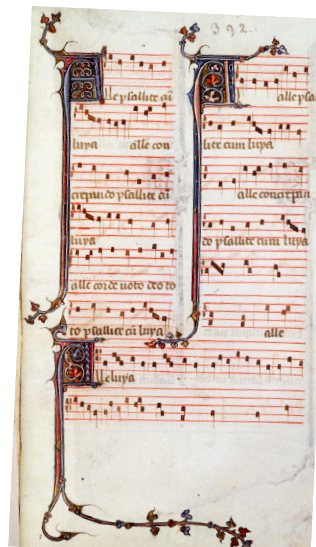 392.
Alle psallite cũ
luya alle con
crepando psallite cũ
luya
alle corde uoto deo to
to psallite cũ luya
Alle psal
lite cum luya
alle concrepan
do psallite cum luya
alle
Alleluya